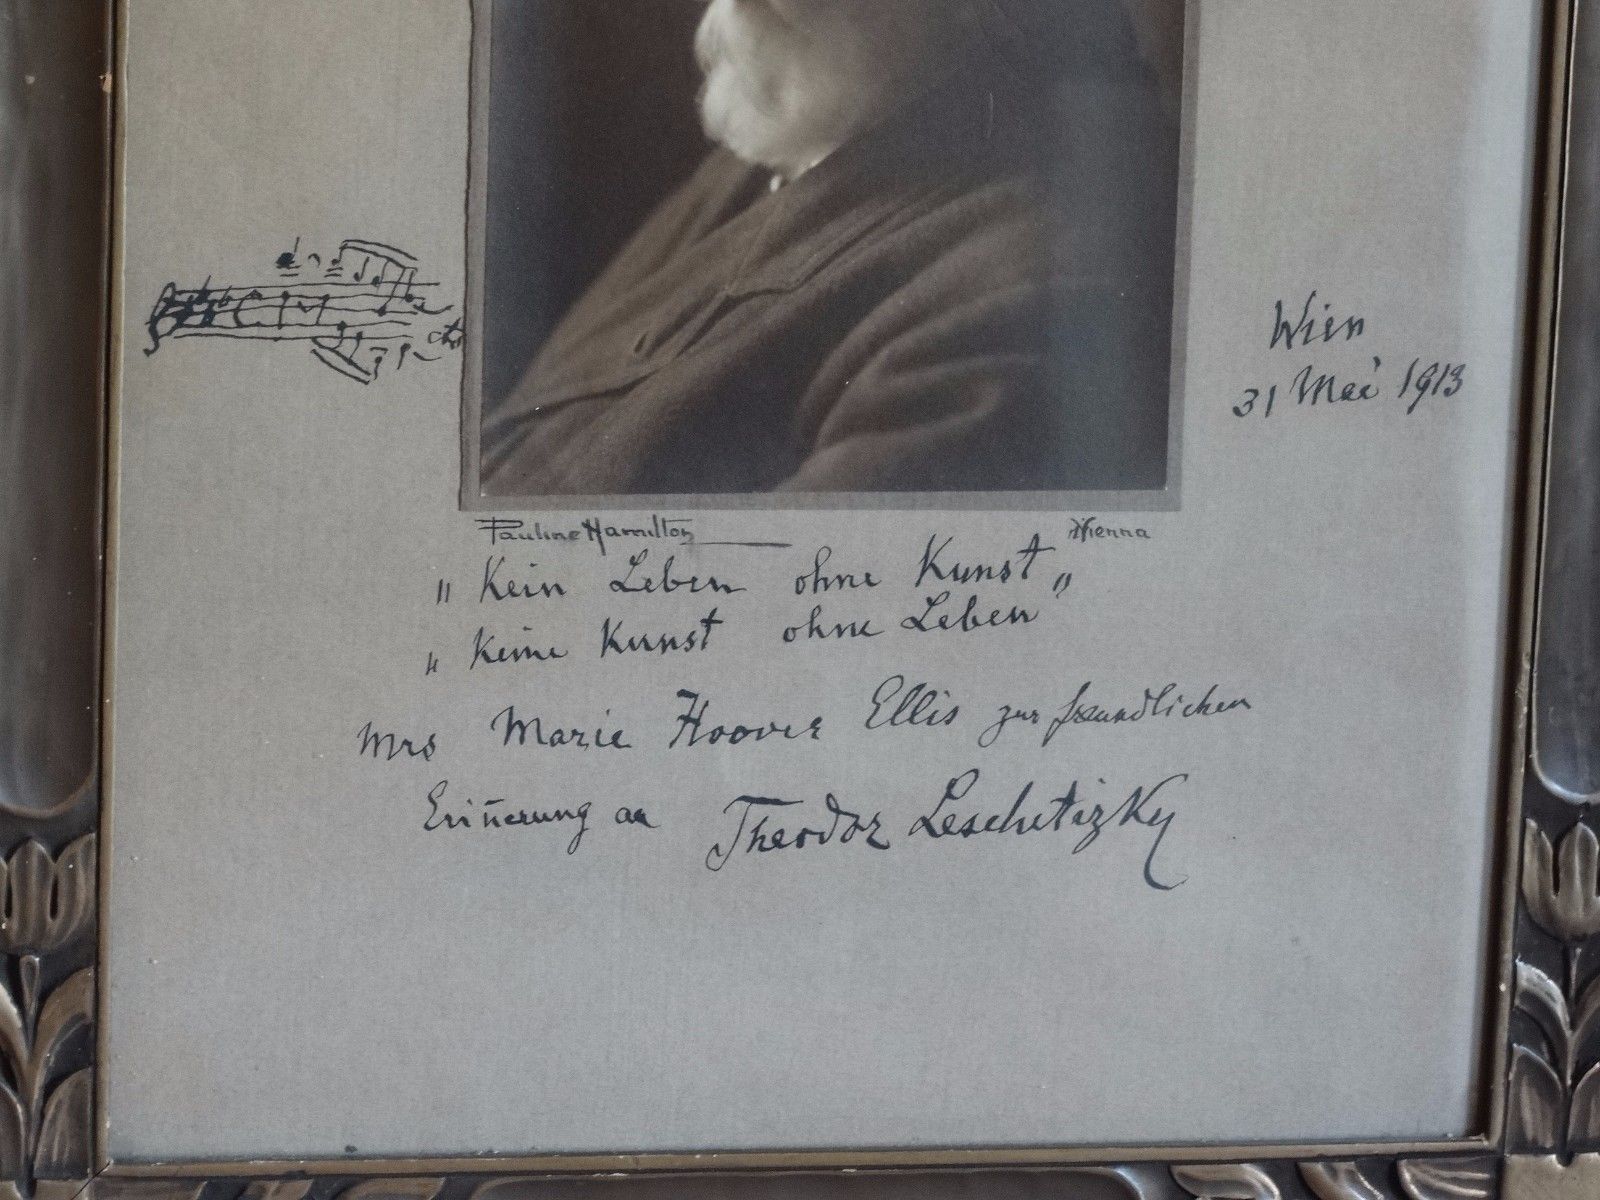 Wien
31 Mai 1913
Pauline Hamilton Vienna
„Kein Leben ohne Kunst„
„Keine Kunst ohne Leben"
Mrs Marie Hoover Ellis zur freundlichen
Erin̄erung an Theodor Leschetizky